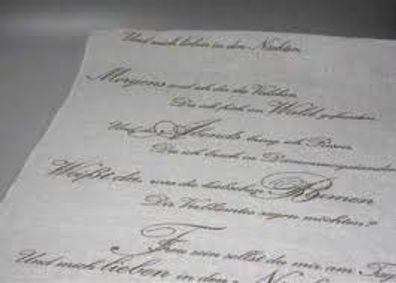 Und mich lieben in den Nächten.
Morgens send ich dir die Veilchen,
Die ich früh im Wald gefunden,
Und des Abends bring ich Rosen,
Die ich brach in Dämmrungstunden.
Weißt du, was die hübschen Blumen
Dir Verblümtes sagen möchten?
Treu sein sollst du mir am Tage
Und mich lieben in den